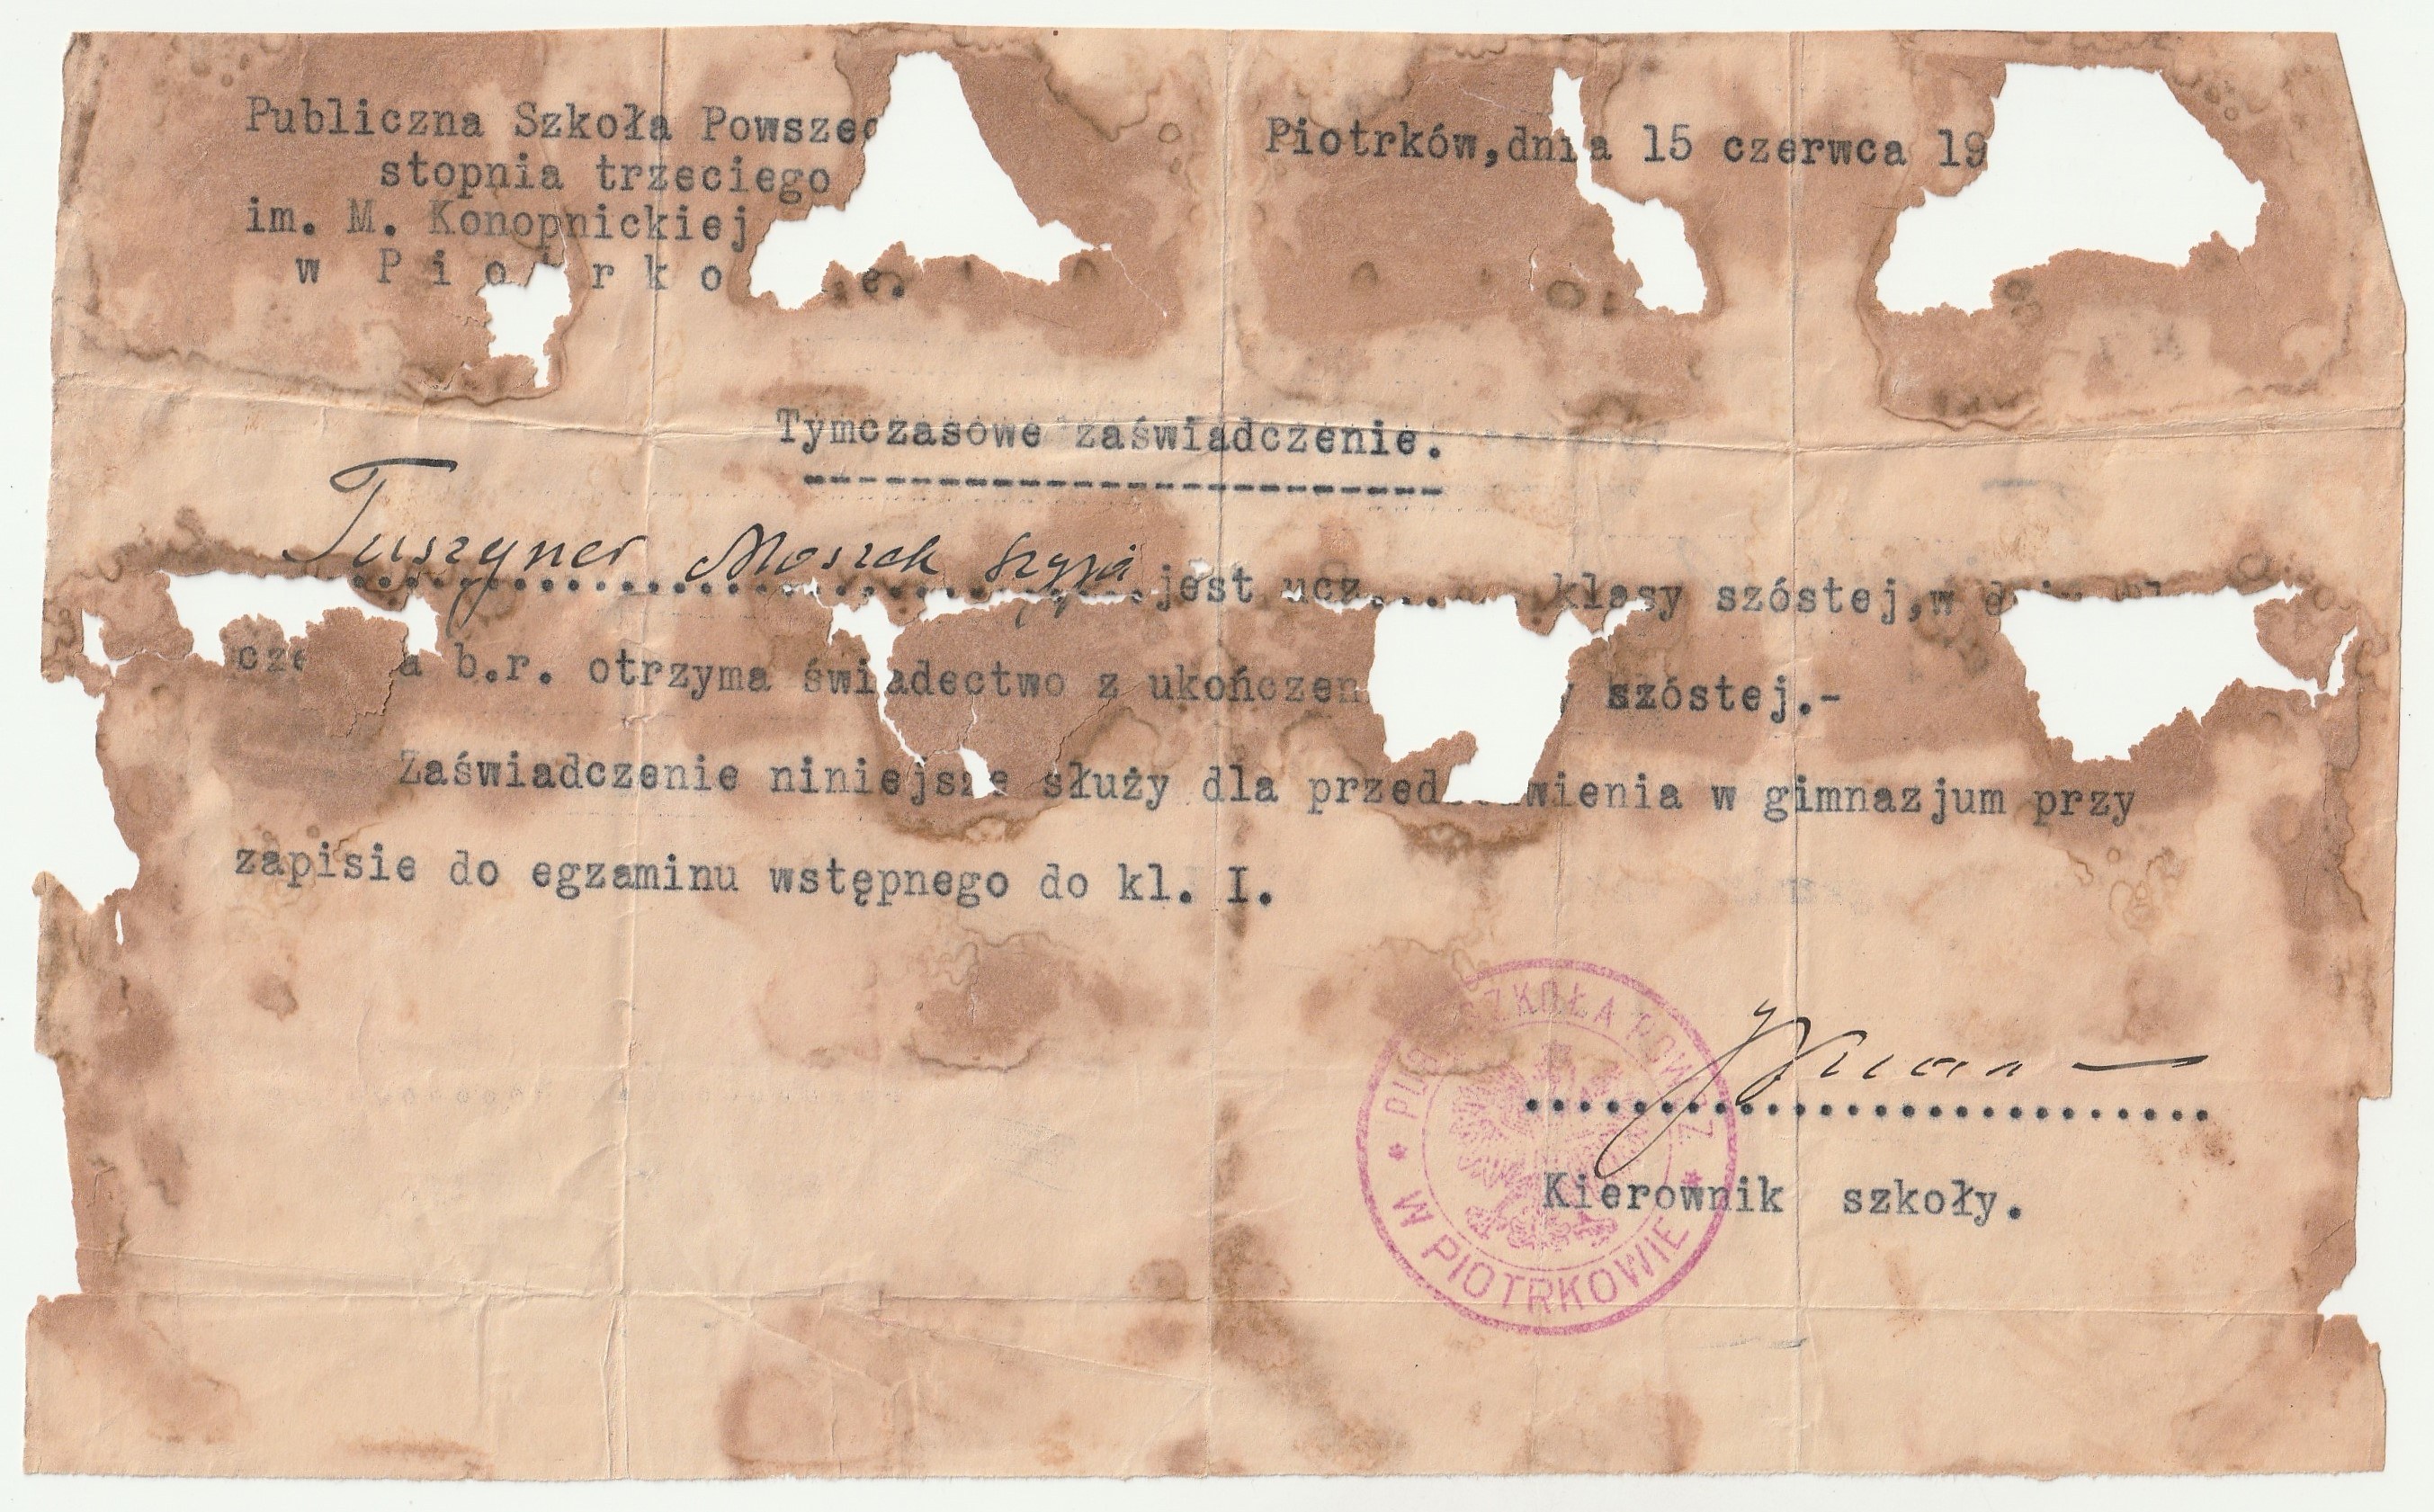 Publiczna Szkoła Powszec
stopnia trzeciego
im. M. Konopnickiej
w P i o t r k o e.
Piotrków, dnia 15 czerwca 19
Tymczasowe zaświadczenie.
Tuszyner Moszek Szyja jest ucz..... klasy szóstej, w
cze a b.r. otrzyma świadectwo z ukończen y szóstej.-
Zaświadczenie niniejsze służy dla przed wienia w gimnazjum przy
zapisie do egzaminu wstępnego do kl. I.
Kierownik szkoły.
SZKOŁA POWSZ
* W PIOTRKOWIE *